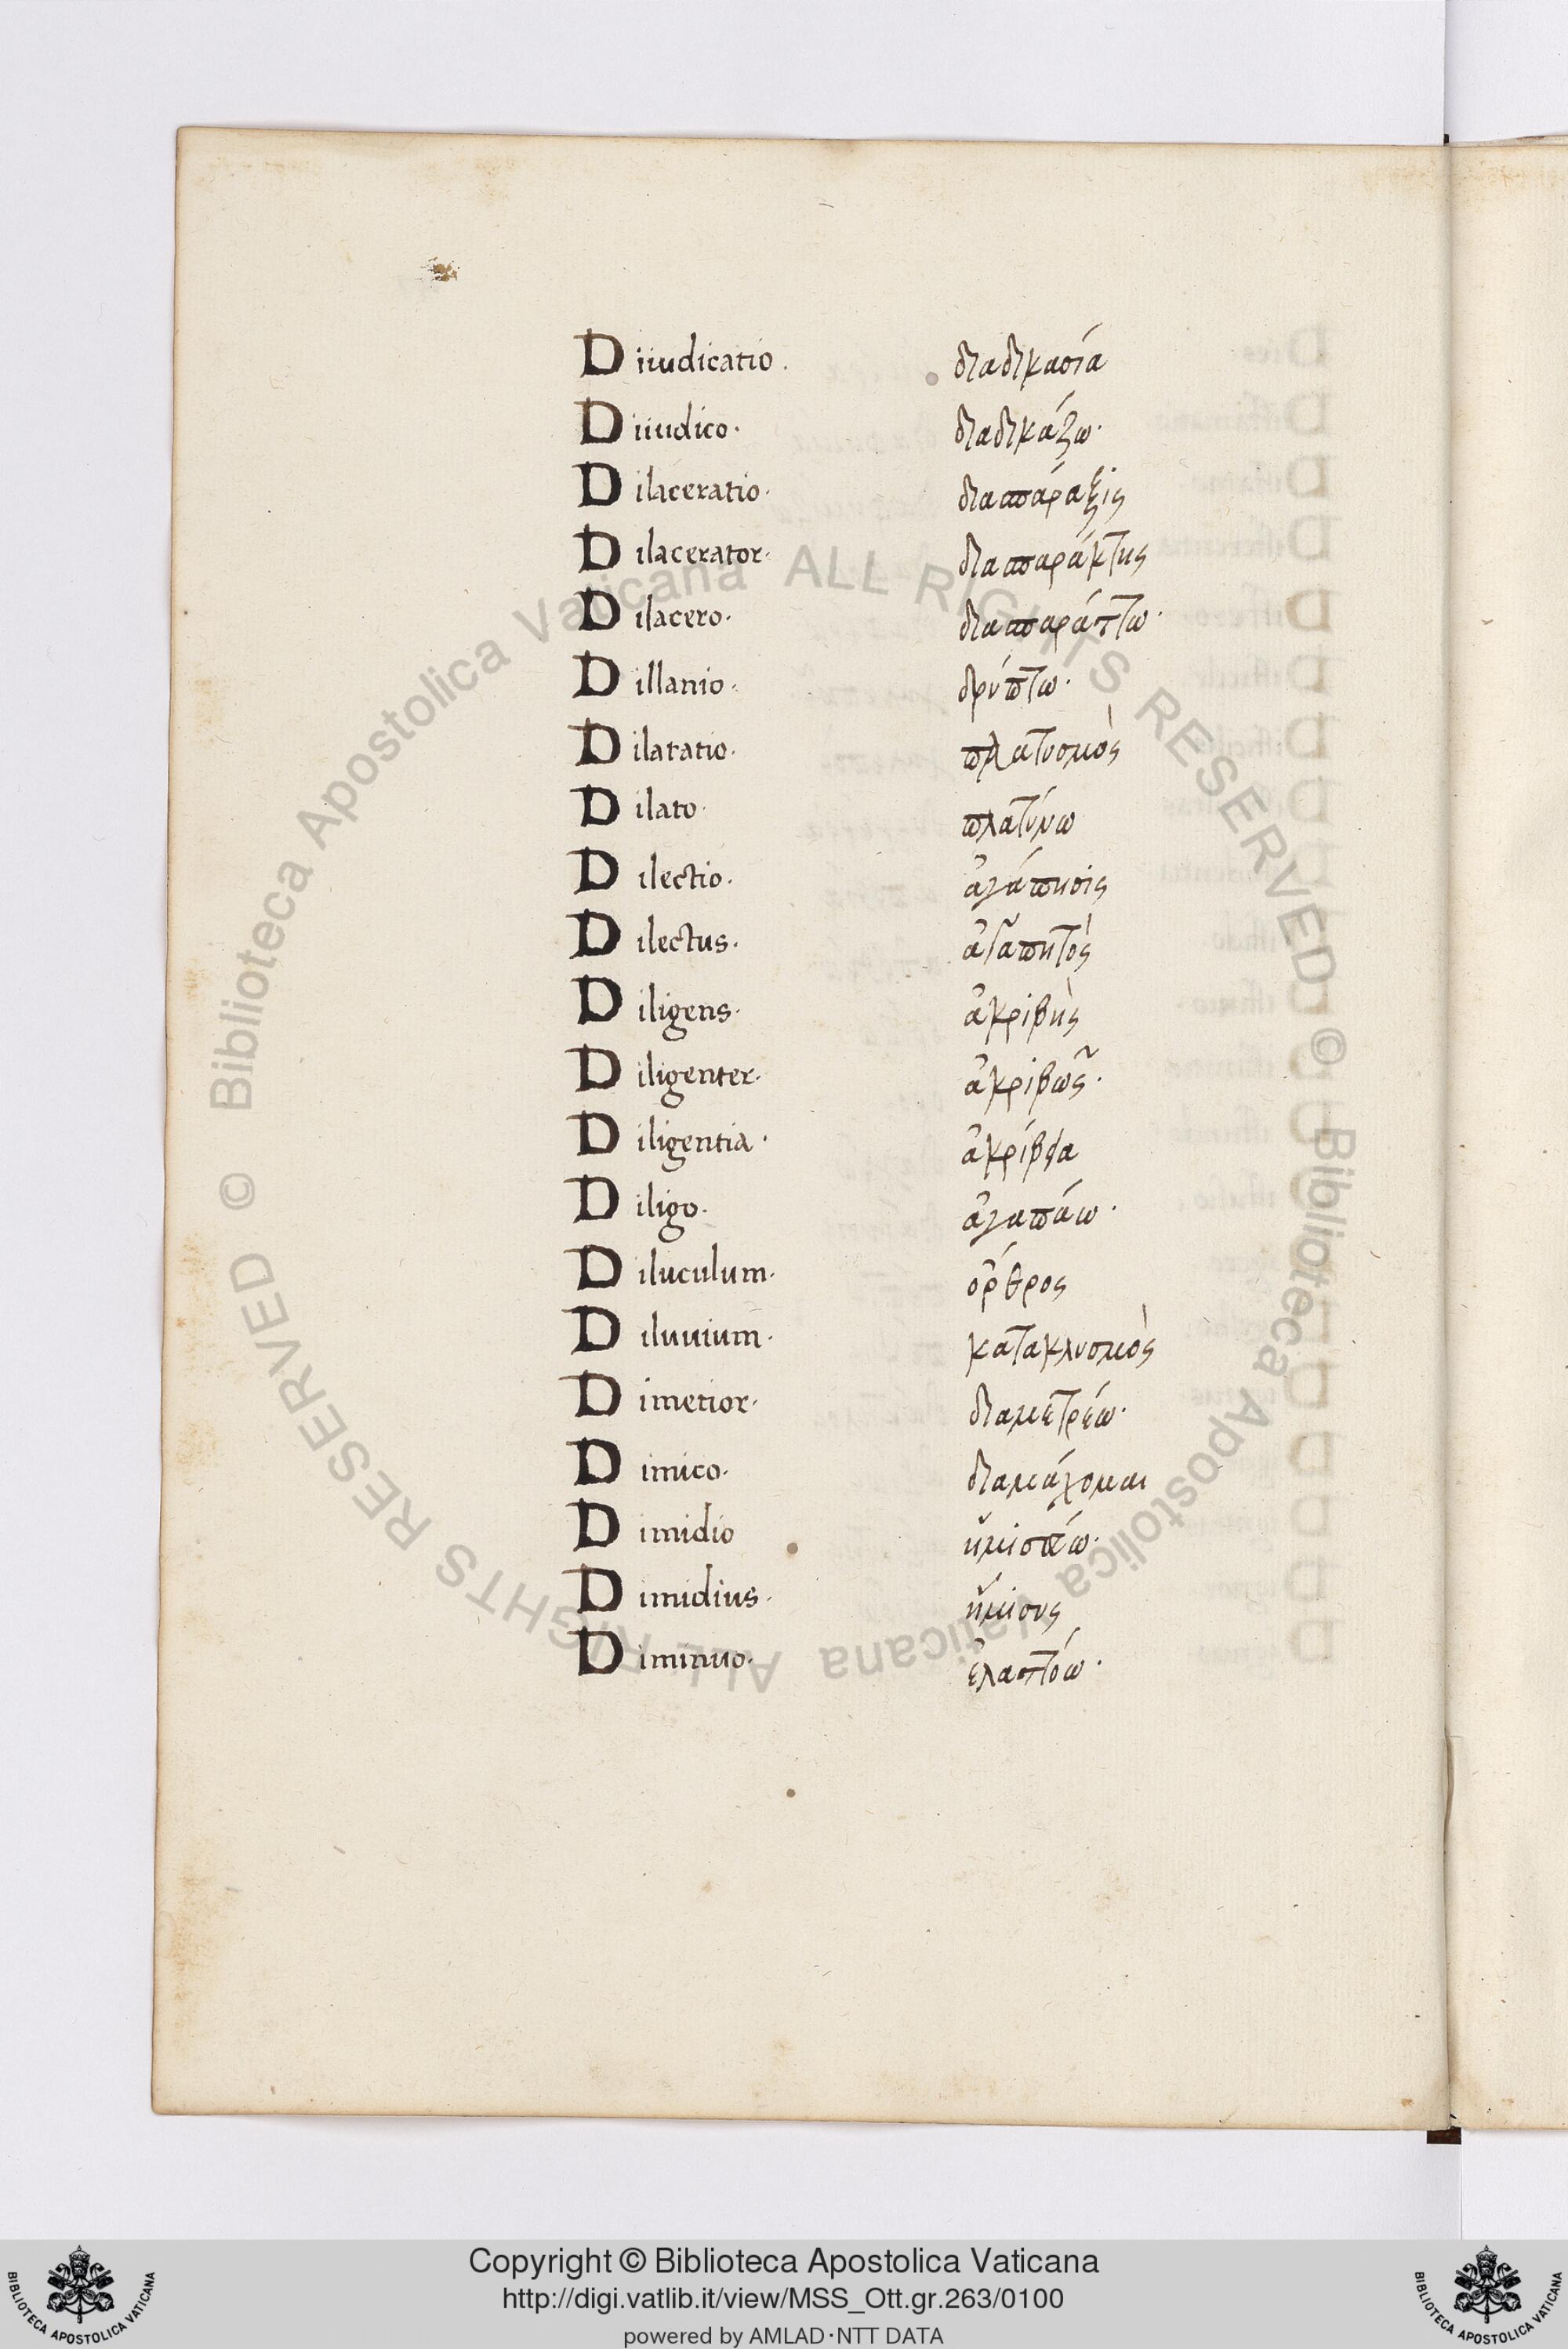 Diiudicatio. διαδικασία
Diiudico. διαδικάζω.
Dilaceratio. διαπάραξις
Dilacerator. διαπαράκτης
Dilacero. διαπαράττω.
Dillanio. δρύπτω.
Dilatatio. πλατυσμὸς
Dilato. πλατύνω
Dilectio. ἀγάπησις
Dilectus. ἀγαπητὸς
Diligens. ἀκριβὴς
Diligenter. ἀκριβῶς.
Diligentia. ἀκρίβεια
Diligo. ἀγαπάω.
Diluculum. ὄρθρος
Diluuium. κατακλυσμὸς
Dimetior. διαμετρέω.
Dimico. διαμάχομαι
Dimidio
Dimidius. ἥμισυς
Diminuo. ἐλαττόω.
© Biblioteca Apostolica Vaticana ALL RIGHTS RESERVED © Biblioteca Apostolica Vaticana ALL RIGHTS RESERVED
Copyright © Biblioteca Apostolica Vaticana
http://digi.vatlib.it/view/MSS_Ott.gr.263/0100
powered by AMLAD·NTT DATA
BIBLIOTECA APOSTOLICA VATICANA
BIBLIOTECA APOSTOLICA VATICANA